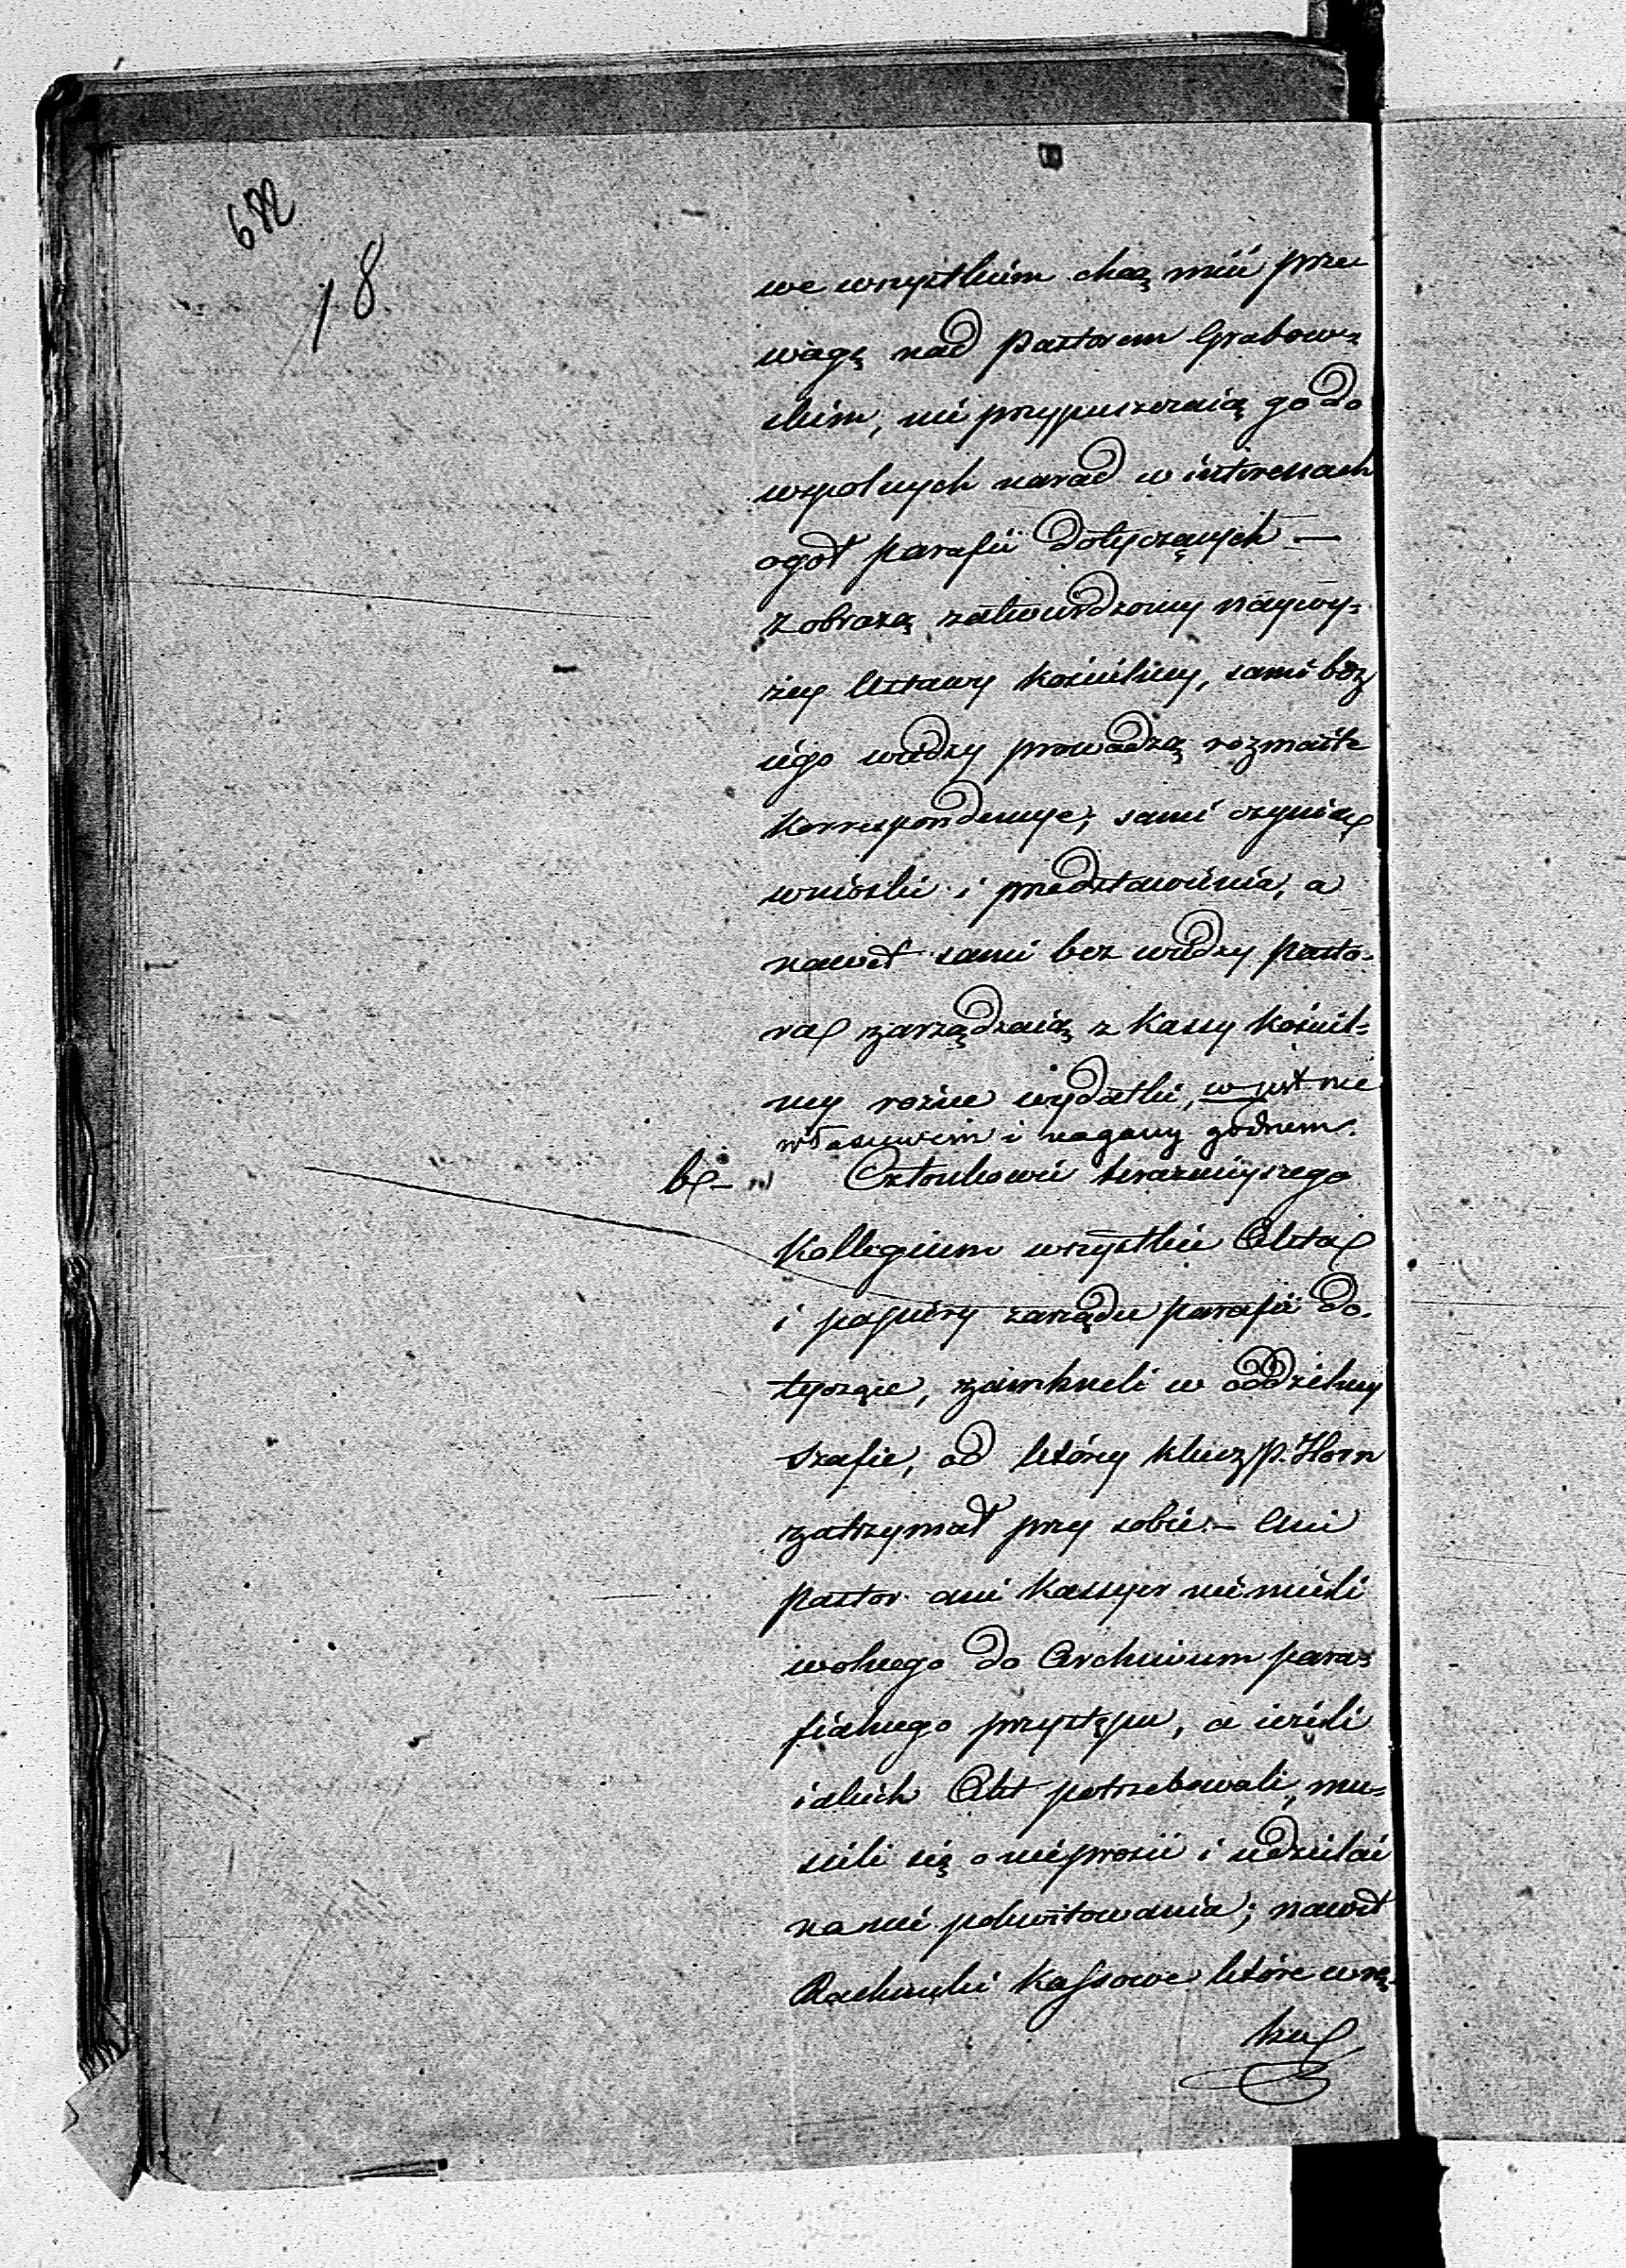 682
18
we wszystkiem chcą mieć prze
wagę nad Pastorem Grabow=
skim, nie przypuszczaią go do
wspolnych narad w interessach
ogoł parafii dotyczących —
z obrazą zatwierdzoney naywy=
żey Ustawy Kościelney, sami bez
iego wiedzy prowadzą rozmaite
Korrespondencye; sami czynią
wnioski i przedstawienia, a
nawet sami bez wiedzy Pasto=
ra zarządzaią z Kassy Kościel=
ney rożne wydatki, co jest nie
właściwem i nagany godnem.
b. Członkowie teraznieyszego
Kollegium wszystkie Akta
i papiery zarządu parafii do=
tyczące, zamkneli w oddzielney
Szafie, od ktorey klucz p. Horn
zatrzymał przy sobie. – Ani
Pastor ani Kassyer nie mieli
wolnego do Archiwum para=
fialnego przystępu, a ieżeli
iakich Akt potrzebowali, mu=
sieli się o nie prosić i udzielać
na nie pokwitowania; nawet
Rachunki Kassowe które w rę=
ku